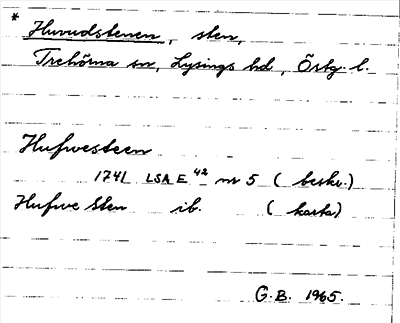 * Huvudstenen, sten,
Trehörna sn, Lysings hd, Östg. l.
Hufwesteen
1741 LSA E 42 nr 5 (beskr.)
Hufwe Sten ib. (karta)
G.B. 1965.